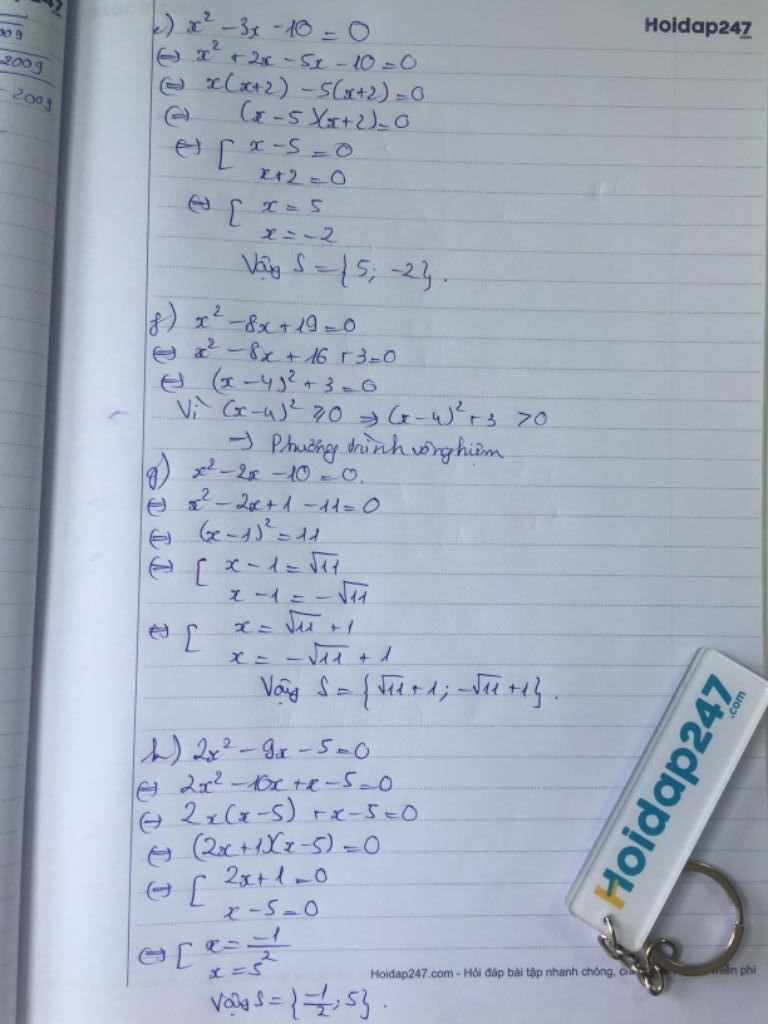 009
2009
- 2009
Hoidap247
e) x² - 3x - 10 = 0
⇔ x² + 2x - 5x - 10 = 0
⇔ x(x+2) - 5(x+2) = 0
⇔ (x - 5)(x+2) = 0
⇔ [ x - 5 = 0
x+2 = 0
⇔ [ x = 5
x = -2
Vậy S = {5; -2}.
f) x² - 8x + 19 = 0
⇔ x² - 8x + 16 + 3 = 0
⇔ (x - 4)² + 3 = 0
Vì (x-4)² ≥ 0 ⇒ (x-4)² + 3 > 0
→ Phương trình vô nghiệm
g) x² - 2x - 10 = 0.
⇔ x² - 2x + 1 - 11 = 0
⇔ (x - 1)² = 11
⇔ [ x - 1 = √11
x - 1 = -√11
⇔ [ x = √11 + 1
x = -√11 + 1
Vậy S = {√11 + 1; -√11 + 1}.
h) 2x² - 9x - 5 = 0
⇔ 2x² - 10x + x - 5 = 0
⇔ 2x(x - 5) + x - 5 = 0
⇔ (2x+1)(x - 5) = 0
⇔ [ 2x+1 = 0
x - 5 = 0
⇔ [ x = -1/2
x = 5
Vậy S = {-1/2; 5}.
Hoidap247.com
Hoidap247.com - Hỏi đáp bài tập nhanh chóng, miễn phí